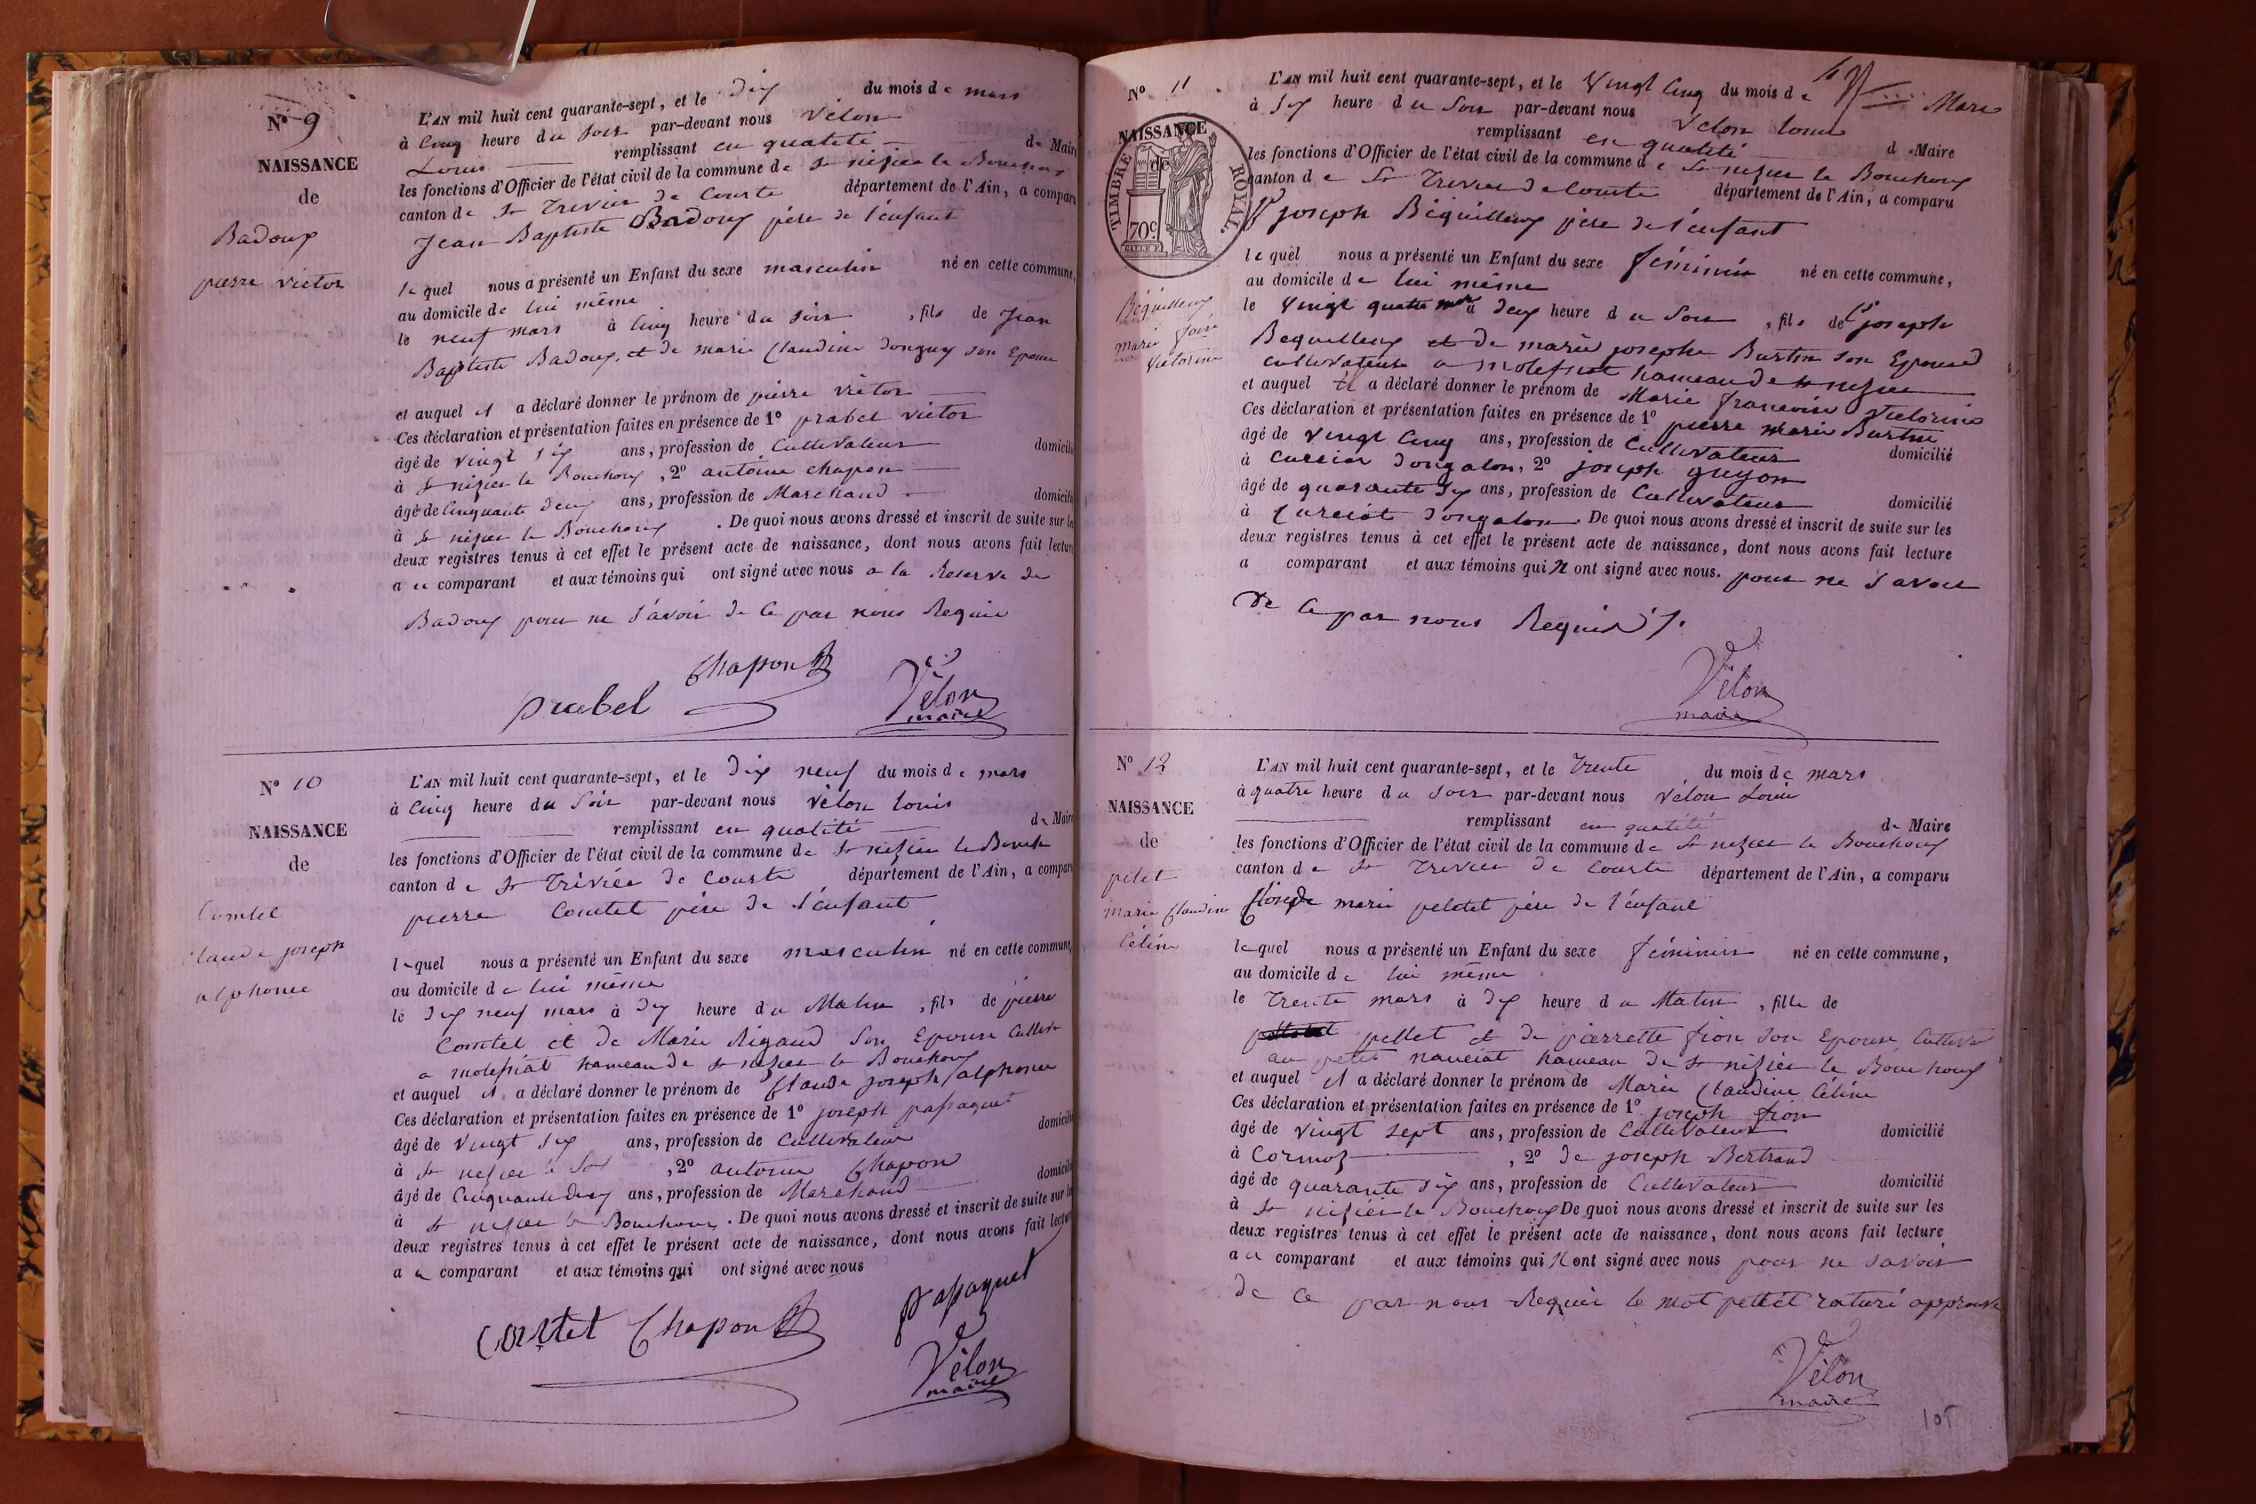 Nº 9
NAISSANCE
de
Badoux
pierre victor
L'AN mil huit cent quarante-sept, et le dix du mois de mars
à Cinq heure du soir par-devant nous Vélon
Louis remplissant en qualité de Maire
les fonctions d'Officier de l'état civil de la commune de St nizier le Bouchoux
canton de St Trivier de Courte département de l'Ain, a comparu
Jean Baptiste Badoux père de l'enfant
lequel nous a présenté un Enfant du sexe masculin né en cette commune,
au domicile de lui même
le neuf mars à Cinq heure du soir, fils de Jean
Baptiste Badoux, et de marie Claudine donguy son Epouse
et auquel il a déclaré donner le prénom de pierre victor
Ces déclaration et présentation faites en présence de 1º prabel victor
âgé de vingt six ans, profession de Cultivateur domicilié
à St nizier le Bouchoux, 2º antoine chapon
âgé de Cinquante deux ans, profession de Marchand domicilié
à St nizier le Bouchoux. De quoi nous avons dressé et inscrit de suite sur les
deux registres tenus à cet effet le présent acte de naissance, dont nous avons fait lecture
au comparant et aux témoins qui ont signé avec nous a la Reserve de
Badoux pour ne savoir de Ce par nous Requis
prabel Chapon Vélon
maire
Nº 10
NAISSANCE
de
Comtet
Claude joseph
alphonse
L'AN mil huit cent quarante-sept, et le dix neuf du mois de mars
à Cinq heure du soir par-devant nous vélon louis
remplissant en qualité de Maire
les fonctions d'Officier de l'état civil de la commune de St nizier le Bouch
canton de St Trivier de Courte département de l'Ain, a comparu
pierre Comtet père de l'enfant
lequel nous a présenté un Enfant du sexe masculin né en cette commune,
au domicile de lui même
le dix neuf mars à dix heure du Matin, fils de pierre
Comtet et de Marie Rigaud Son Epouse Cultiv
a molefiat hameau de St nizier le Bouchoux
et auquel il a déclaré donner le prénom de Claude joseph alphonse
Ces déclaration et présentation faites en présence de 1º joseph passaquet
âgé de vingt six ans, profession de Cultivateur domicilié
à St nizier le, 2º antoine Chapon
âgé de Cinquante deux ans, profession de Marchand domicilié
à St nizier le Bouchoux. De quoi nous avons dressé et inscrit de suite sur les
deux registres tenus à cet effet le présent acte de naissance, dont nous avons fait lecture
au comparant et aux témoins qui ont signé avec nous
Comtet Chapon passaquet
Vélon
maire
Nº 11
NAISSANCE
de
TIMBRE ROYAL
70c
Béquilleux
marie
victorine
L'AN mil huit cent quarante-sept, et le vingt Cinq du mois de Mars
à six heure du soir par-devant nous Vélon louis
remplissant en qualité de Maire
les fonctions d'Officier de l'état civil de la commune de St nizier le Bouchoux
canton de St Trivier de Courte département de l'Ain, a comparu
joseph Béquilleux père de l'enfant
lequel nous a présenté un Enfant du sexe féminin né en cette commune,
au domicile de lui même
le vingt quatre à deux heure du soir, fils de joseph
Bequilleux et de marie josephe Burtin son Epouse
cultivateurs a molefiat hameau de St nizier
et auquel il a déclaré donner le prénom de Marie francoise Victorine
Ces déclaration et présentation faites en présence de 1º pierre marie Burtin
âgé de vingt Cinq ans, profession de Cultivateur domicilié
à Curciat dongalon, 2º joseph guyon
âgé de quarante six ans, profession de Cultivateur domicilié
à Curciat dongalon. De quoi nous avons dressé et inscrit de suite sur les
deux registres tenus à cet effet le présent acte de naissance, dont nous avons fait lecture
a comparant et aux témoins qui n ont signé avec nous. pour ne savoir
de Ce par nous Requis
Vélon
maire
Nº 12
NAISSANCE
de
pelet
marie Claudine
Céline
L'AN mil huit cent quarante-sept, et le Trente du mois de mars
à quatre heure du soir par-devant nous velon Louis
remplissant en qualité de Maire
les fonctions d'Officier de l'état civil de la commune de St nizier le Bouchoux
canton de St Trivier de Courte département de l'Ain, a comparu
marie peletet père de l'enfant
lequel nous a présenté un Enfant du sexe féminin né en cette commune,
au domicile de lui même
le Trente mars à dix heure du Matin, fille de
pellet et de pierrette fion son Epouse Cultiv
au petit nanciat hameau de St nizier le Bouchoux
et auquel il a déclaré donner le prénom de Marie Claudine Céline
Ces déclaration et présentation faites en présence de 1º joseph fion
âgé de vingt sept ans, profession de Cultivateur domicilié
à Cormoz, 2º de joseph Bertrand
âgé de quarante six ans, profession de Cultivateur domicilié
à St nizier le Bouchoux De quoi nous avons dressé et inscrit de suite sur les
deux registres tenus à cet effet le présent acte de naissance, dont nous avons fait lecture
au comparant et aux témoins qui n ont signé avec nous pour ne savoir
de Ce par nous Requis le mot pettet raturé approuvé
Vélon
maire
105